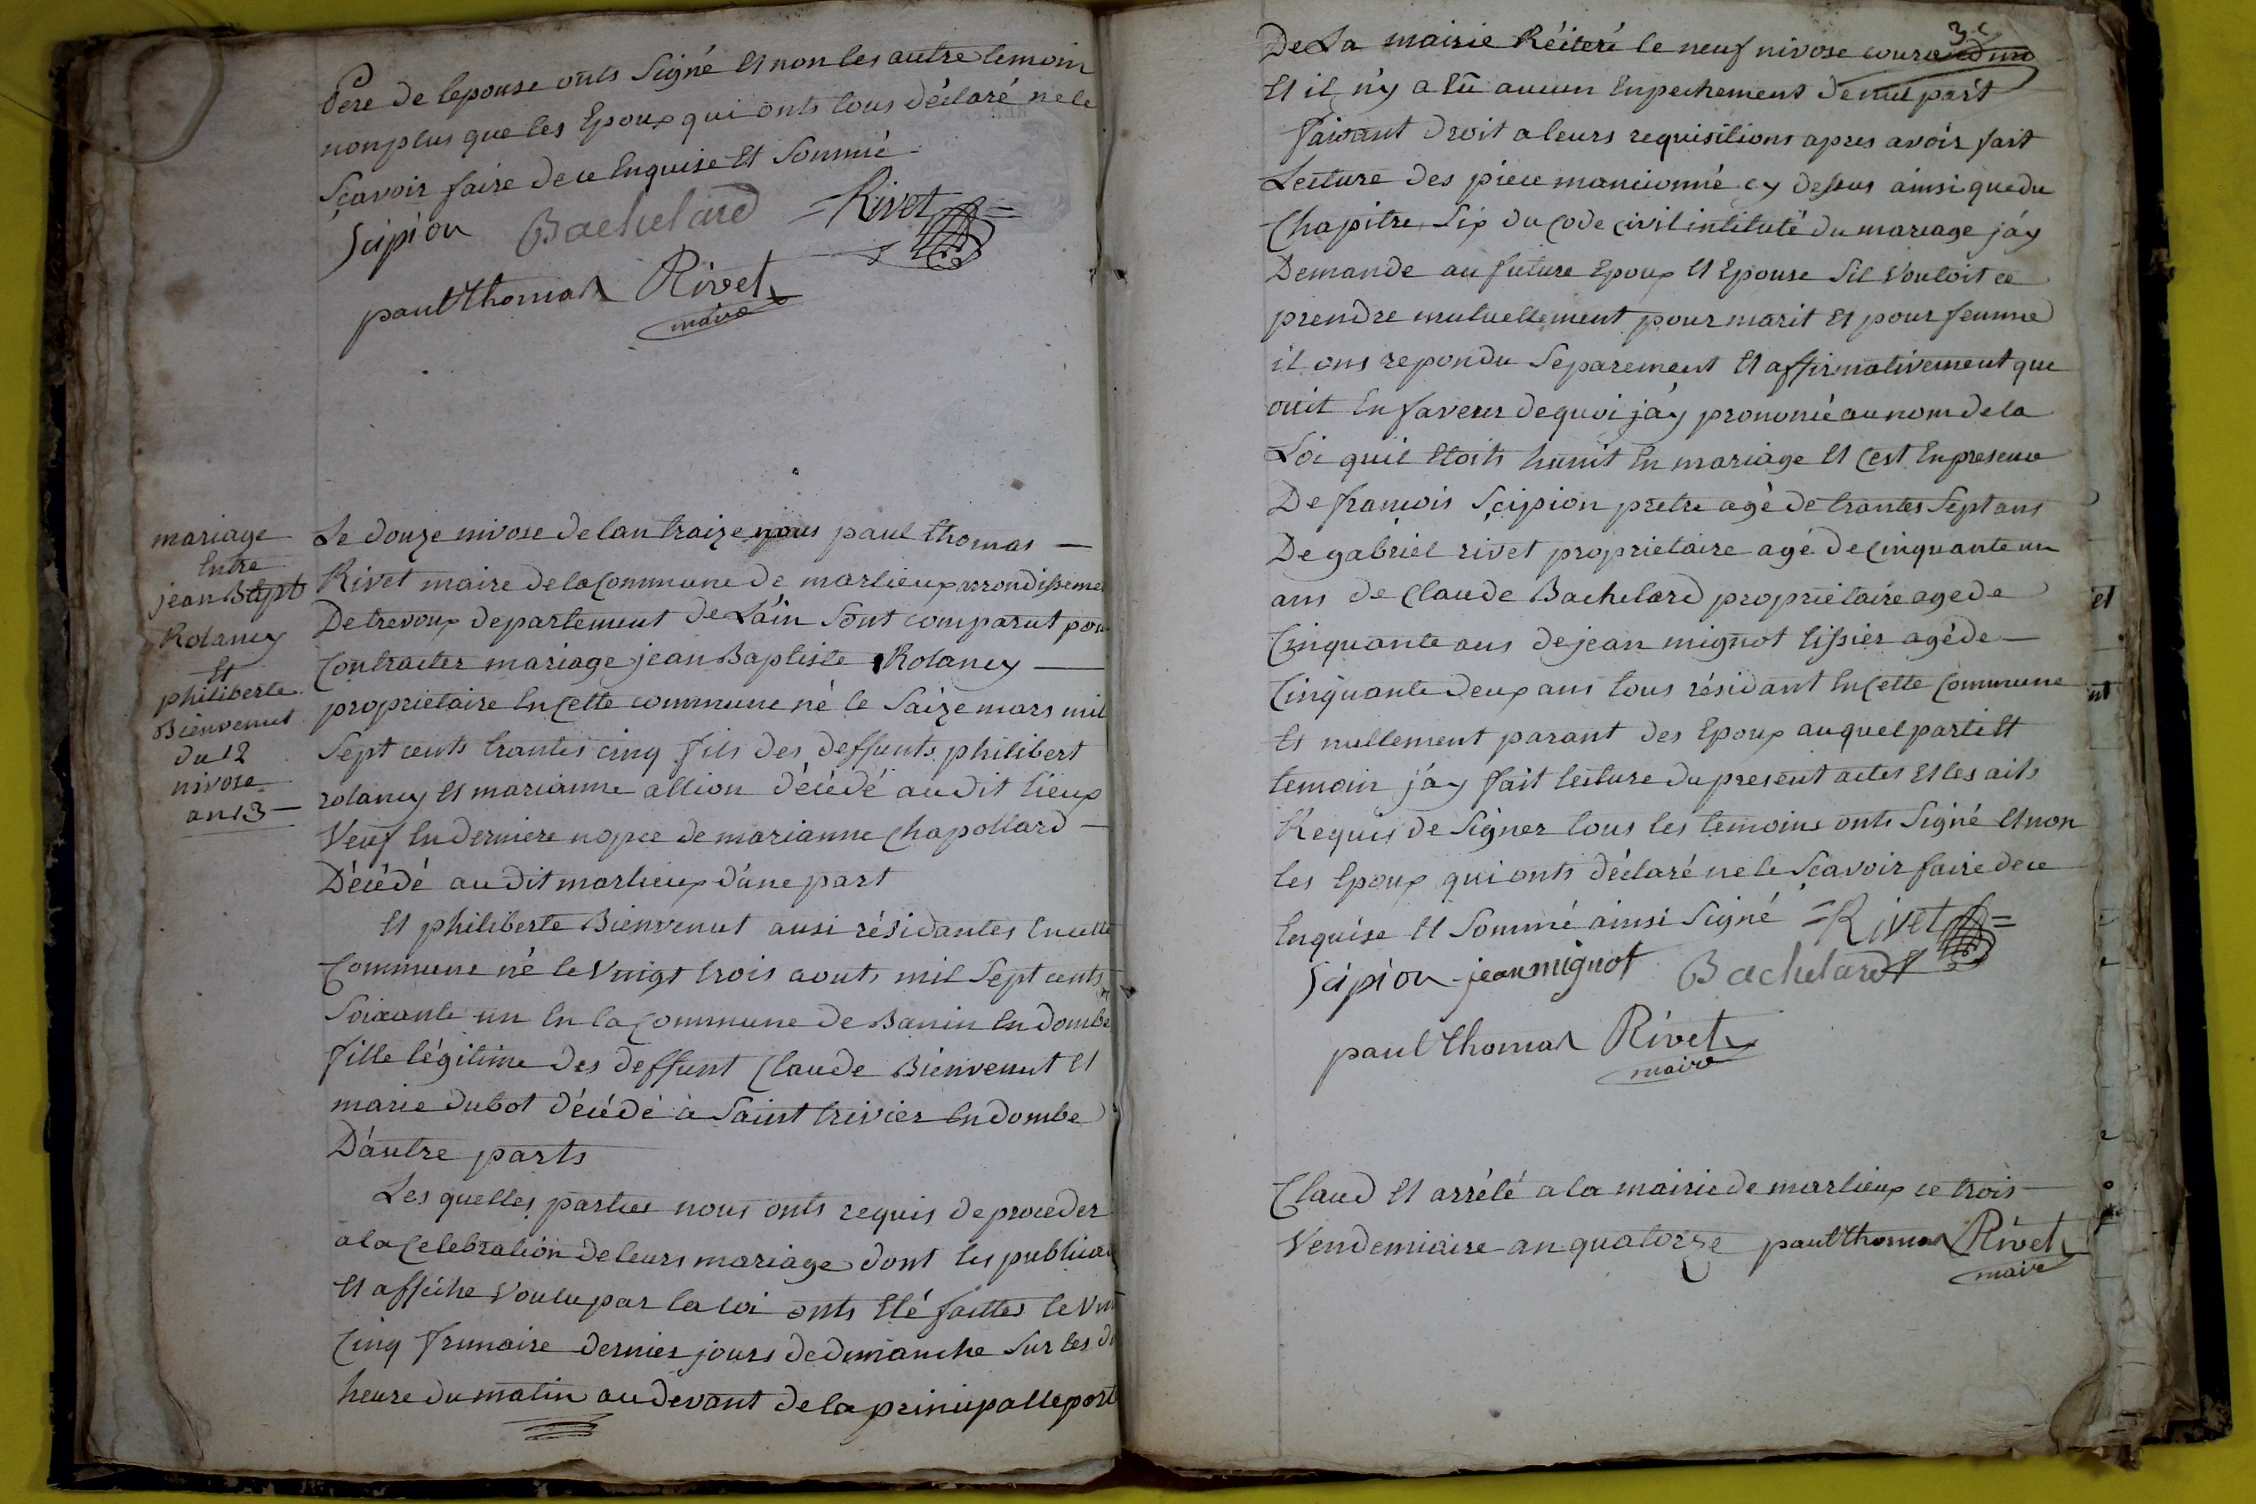 Pere de lepouse onts Signé Et non les autre temoin
nonplus que les Epoux qui onts tous déclaré ne le
Sçavoir faire de ce Enquise Et Sommé
Scipion Bachelard =Rivet=
paul thomas Rivet
maire
mariage
Entre
jean Bapt
Rolancy
Et
philiberte
Bienvenut
du 12
nivose
an 13
Le douze nivose de lan traize nous paul thomas
Rivet maire de la Commune de marlieux arrondisseme
De trevoux departement de Láin Sont comparut pour
Contracter mariage jean Baptiste Rolancy
proprietaire En Cette commune né le Saize mars mil
Sept cents trantes cinq fils des deffunts philibert
rolancy Et marianne allion décédé audit lieux
Veuf En derniere nopce de marianne Chapollard
Décédé audit marlieux d'une part
Et philiberte Bienvenut ausi résidantes En cette
Commune né le Vingt trois aouts mil Sept cents
Soixante un En la Commune de Banin En dombe
fille légitime des deffunt Claude Bienvenut Et
marie dubot décédé à Saint trivier En dombe
D'autre parts
Les quelles parties nous onts requis de proceder
a la Celebration de leurs mariage dont les publica
Et affiche Voulu par la loi onts Eté faittes le Vin
Cinq frimaire dernier jours de dimanche Sur les di
heure du matin au devant de la principalle port
De La mairie Réiteré le neuf nivose courant
Et il n'y a Eü aucun Enpechement de nul part
faisant droit a leurs requisitions apres avoir fait
Lecture des piece mancionné cy dessus ainsi que du
Chapitre Six du Code Civil intitulé du mariage j'ay
Demande au future Epoux Et Epouse Sil Vouloit ce
prendre mutuellement pour marit Et pour femme
il ons repondu Separement Et affirmativement que
ouit En faveur de quoi j'ay prononcé au nom de la
Loi quil Etoits hunit En mariage Et Cest En presence
De francois Scipion pretre agé de trantes Sept ans
De gabriel rivet proprietaire agé de Cinquante un
ans de Claude Bachelard proprietaire age de
Cinquante ans de jean mignot tissier agé de
Cinquante deux ans tous résidant En Cette Commune
Et nullement parant des Epoux auquel parti Et
temoin j'ay fait lecture du present actes Et les aits
Requis de Signer tous les temoins onts Signé Et non
les Epoux qui onts déclaré ne le Sçavoir faire de ce
Enquise Et Sommé ainsi Signé =Rivet=
Scipion jean mignot Bachelard
paul thomas Rivet
maire
Claud Et arrété a la mairie de marlieux ce trois
Vendemiaire an quatorze paul thomas Rivet
maire